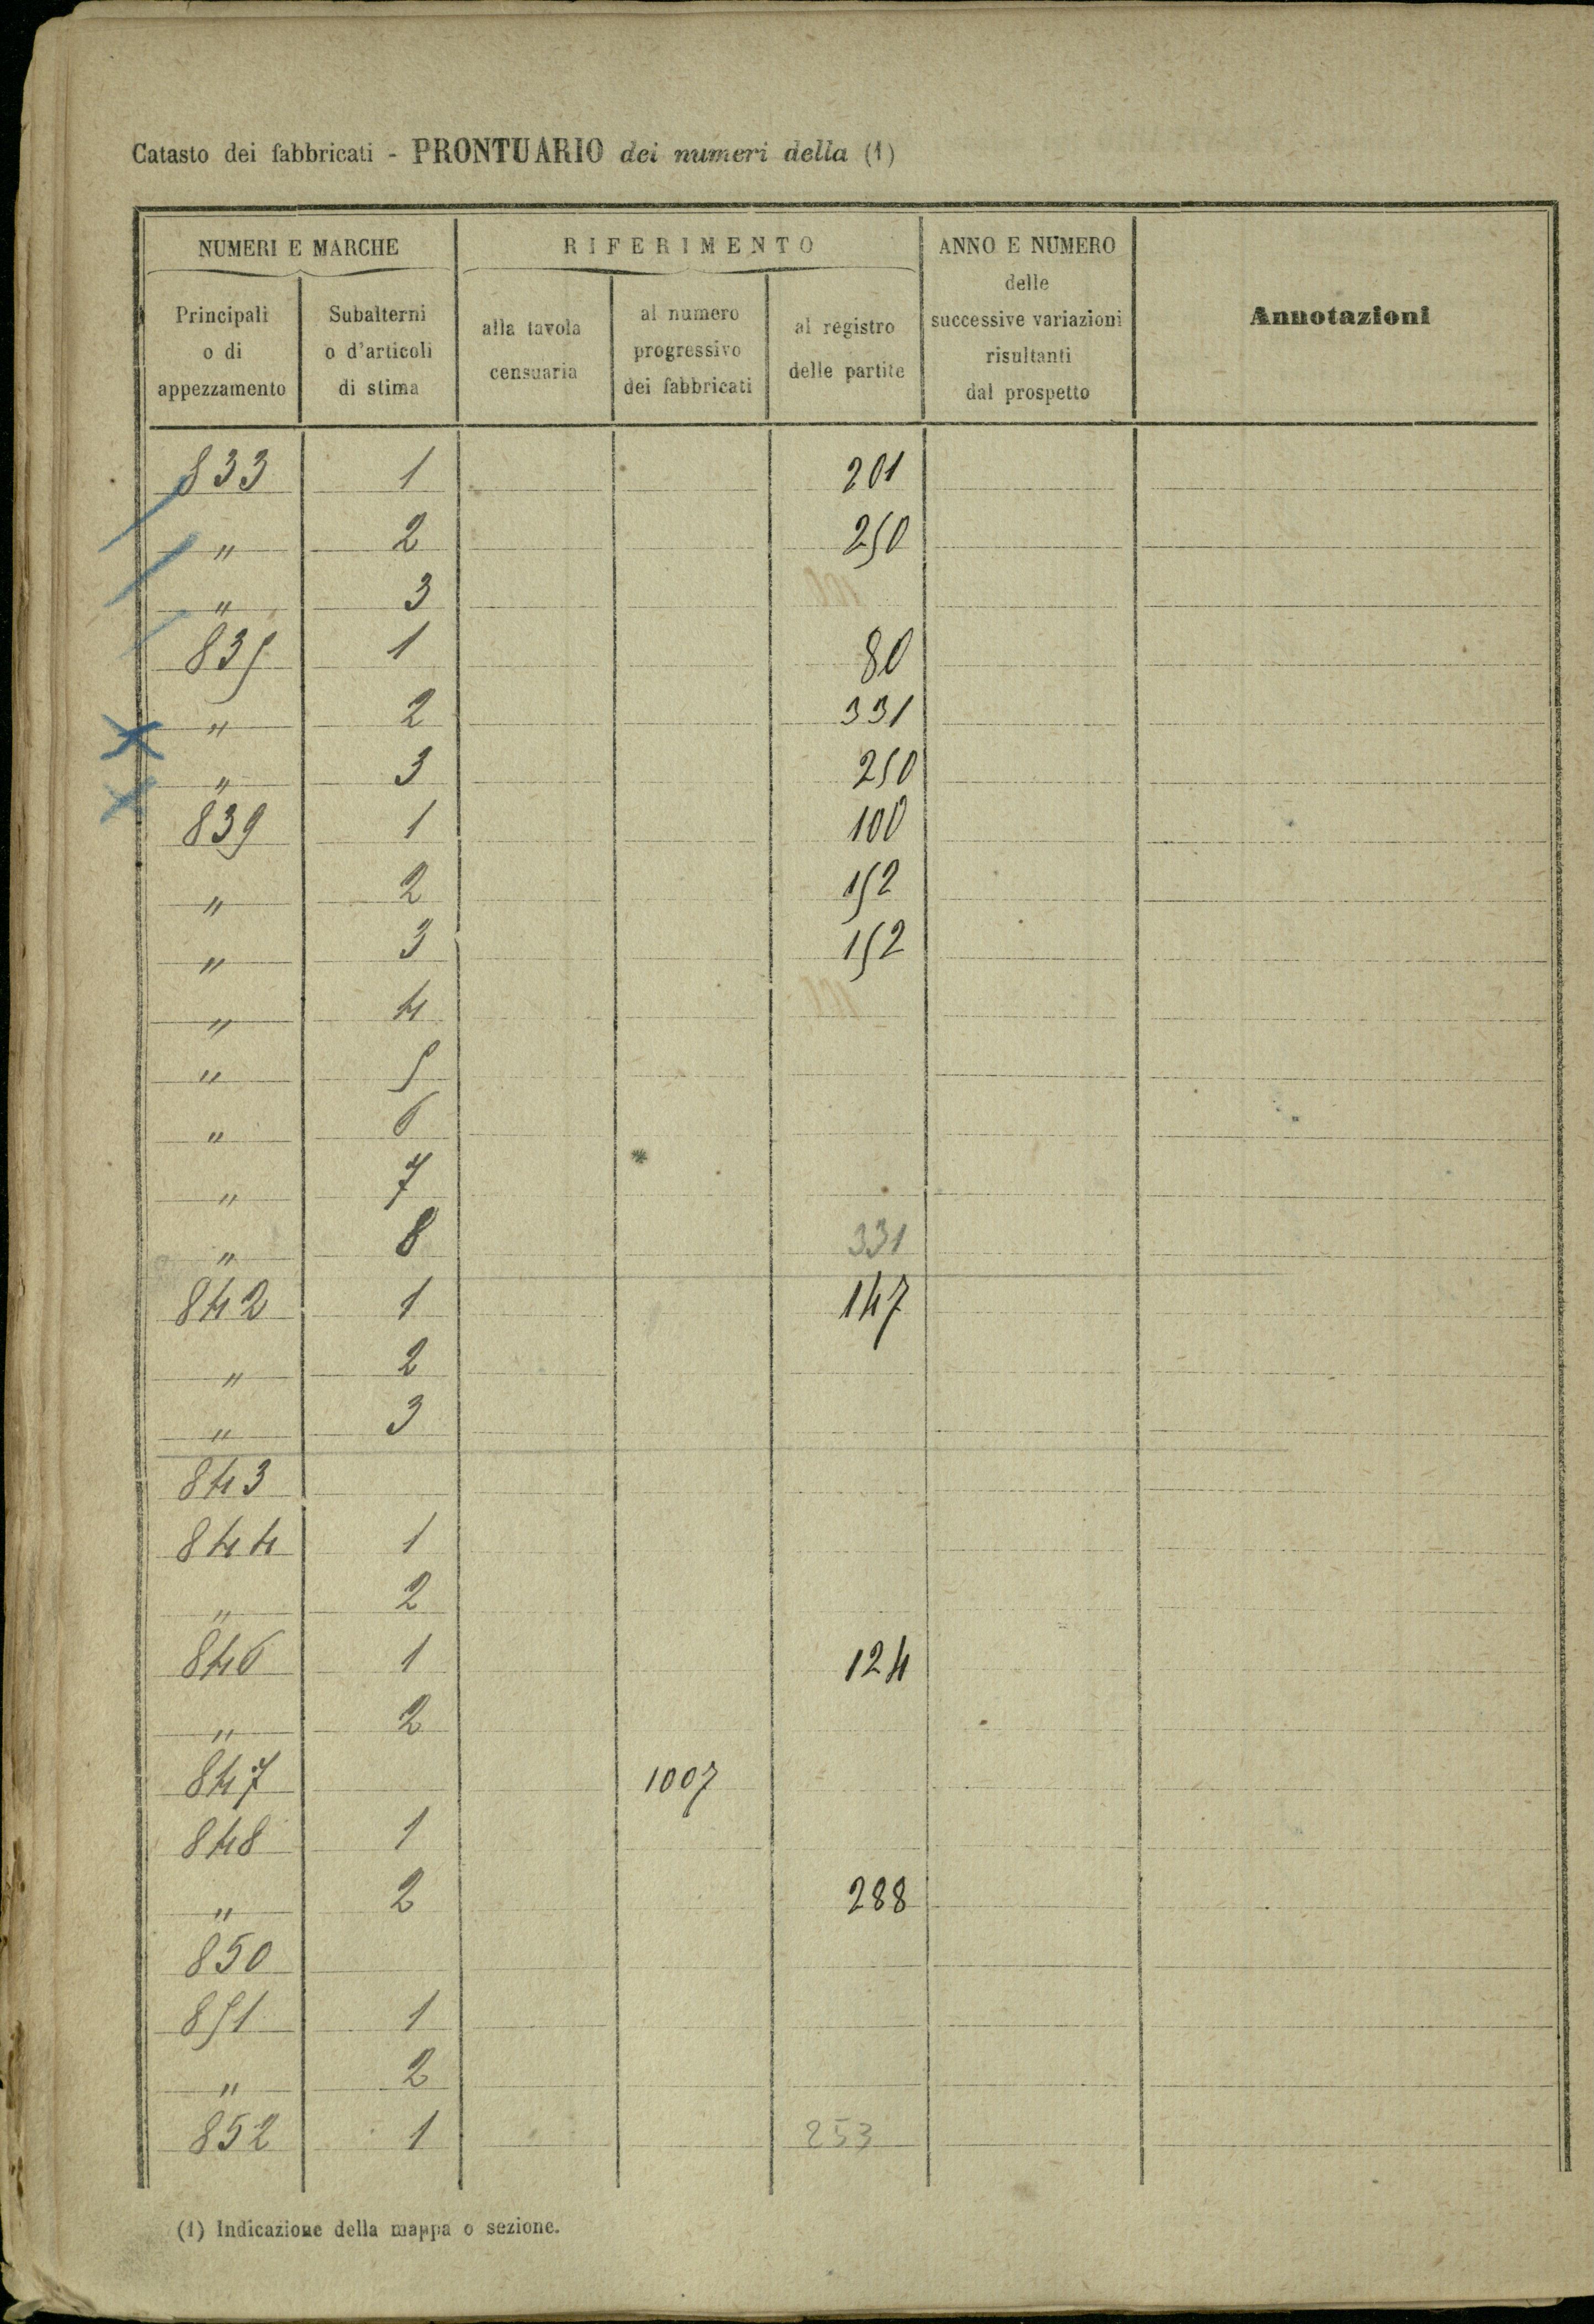 Catasto dei fabbricati - PRONTUARIO dei numeri della (1)
NUMERI E MARCHE
RIFERIMENTO
ANNO E NUMERO
delle
successive variazioni
risultanti
dal prospetto
Annotazioni
Principali
o di
appezzamento
Subalterni
o d'articoli
di stima
alla tavola
censuaria
al numero
progressivo
dei fabbricati
al registro
delle partite
833 1 201
" 2 250
" 3
835 1 80
" 2 331
" 3 250
839 1 100
" 2 152
" 3 152
" 4
" 5
" 6
" 7
" 8 331
842 1 147
" 2
" 3
843
844 1
" 2
846 1 124
" 2
847 1007
848 1
" 2 288
850
851 1
" 2
852 1 253
(1) Indicazione della mappa o sezione.